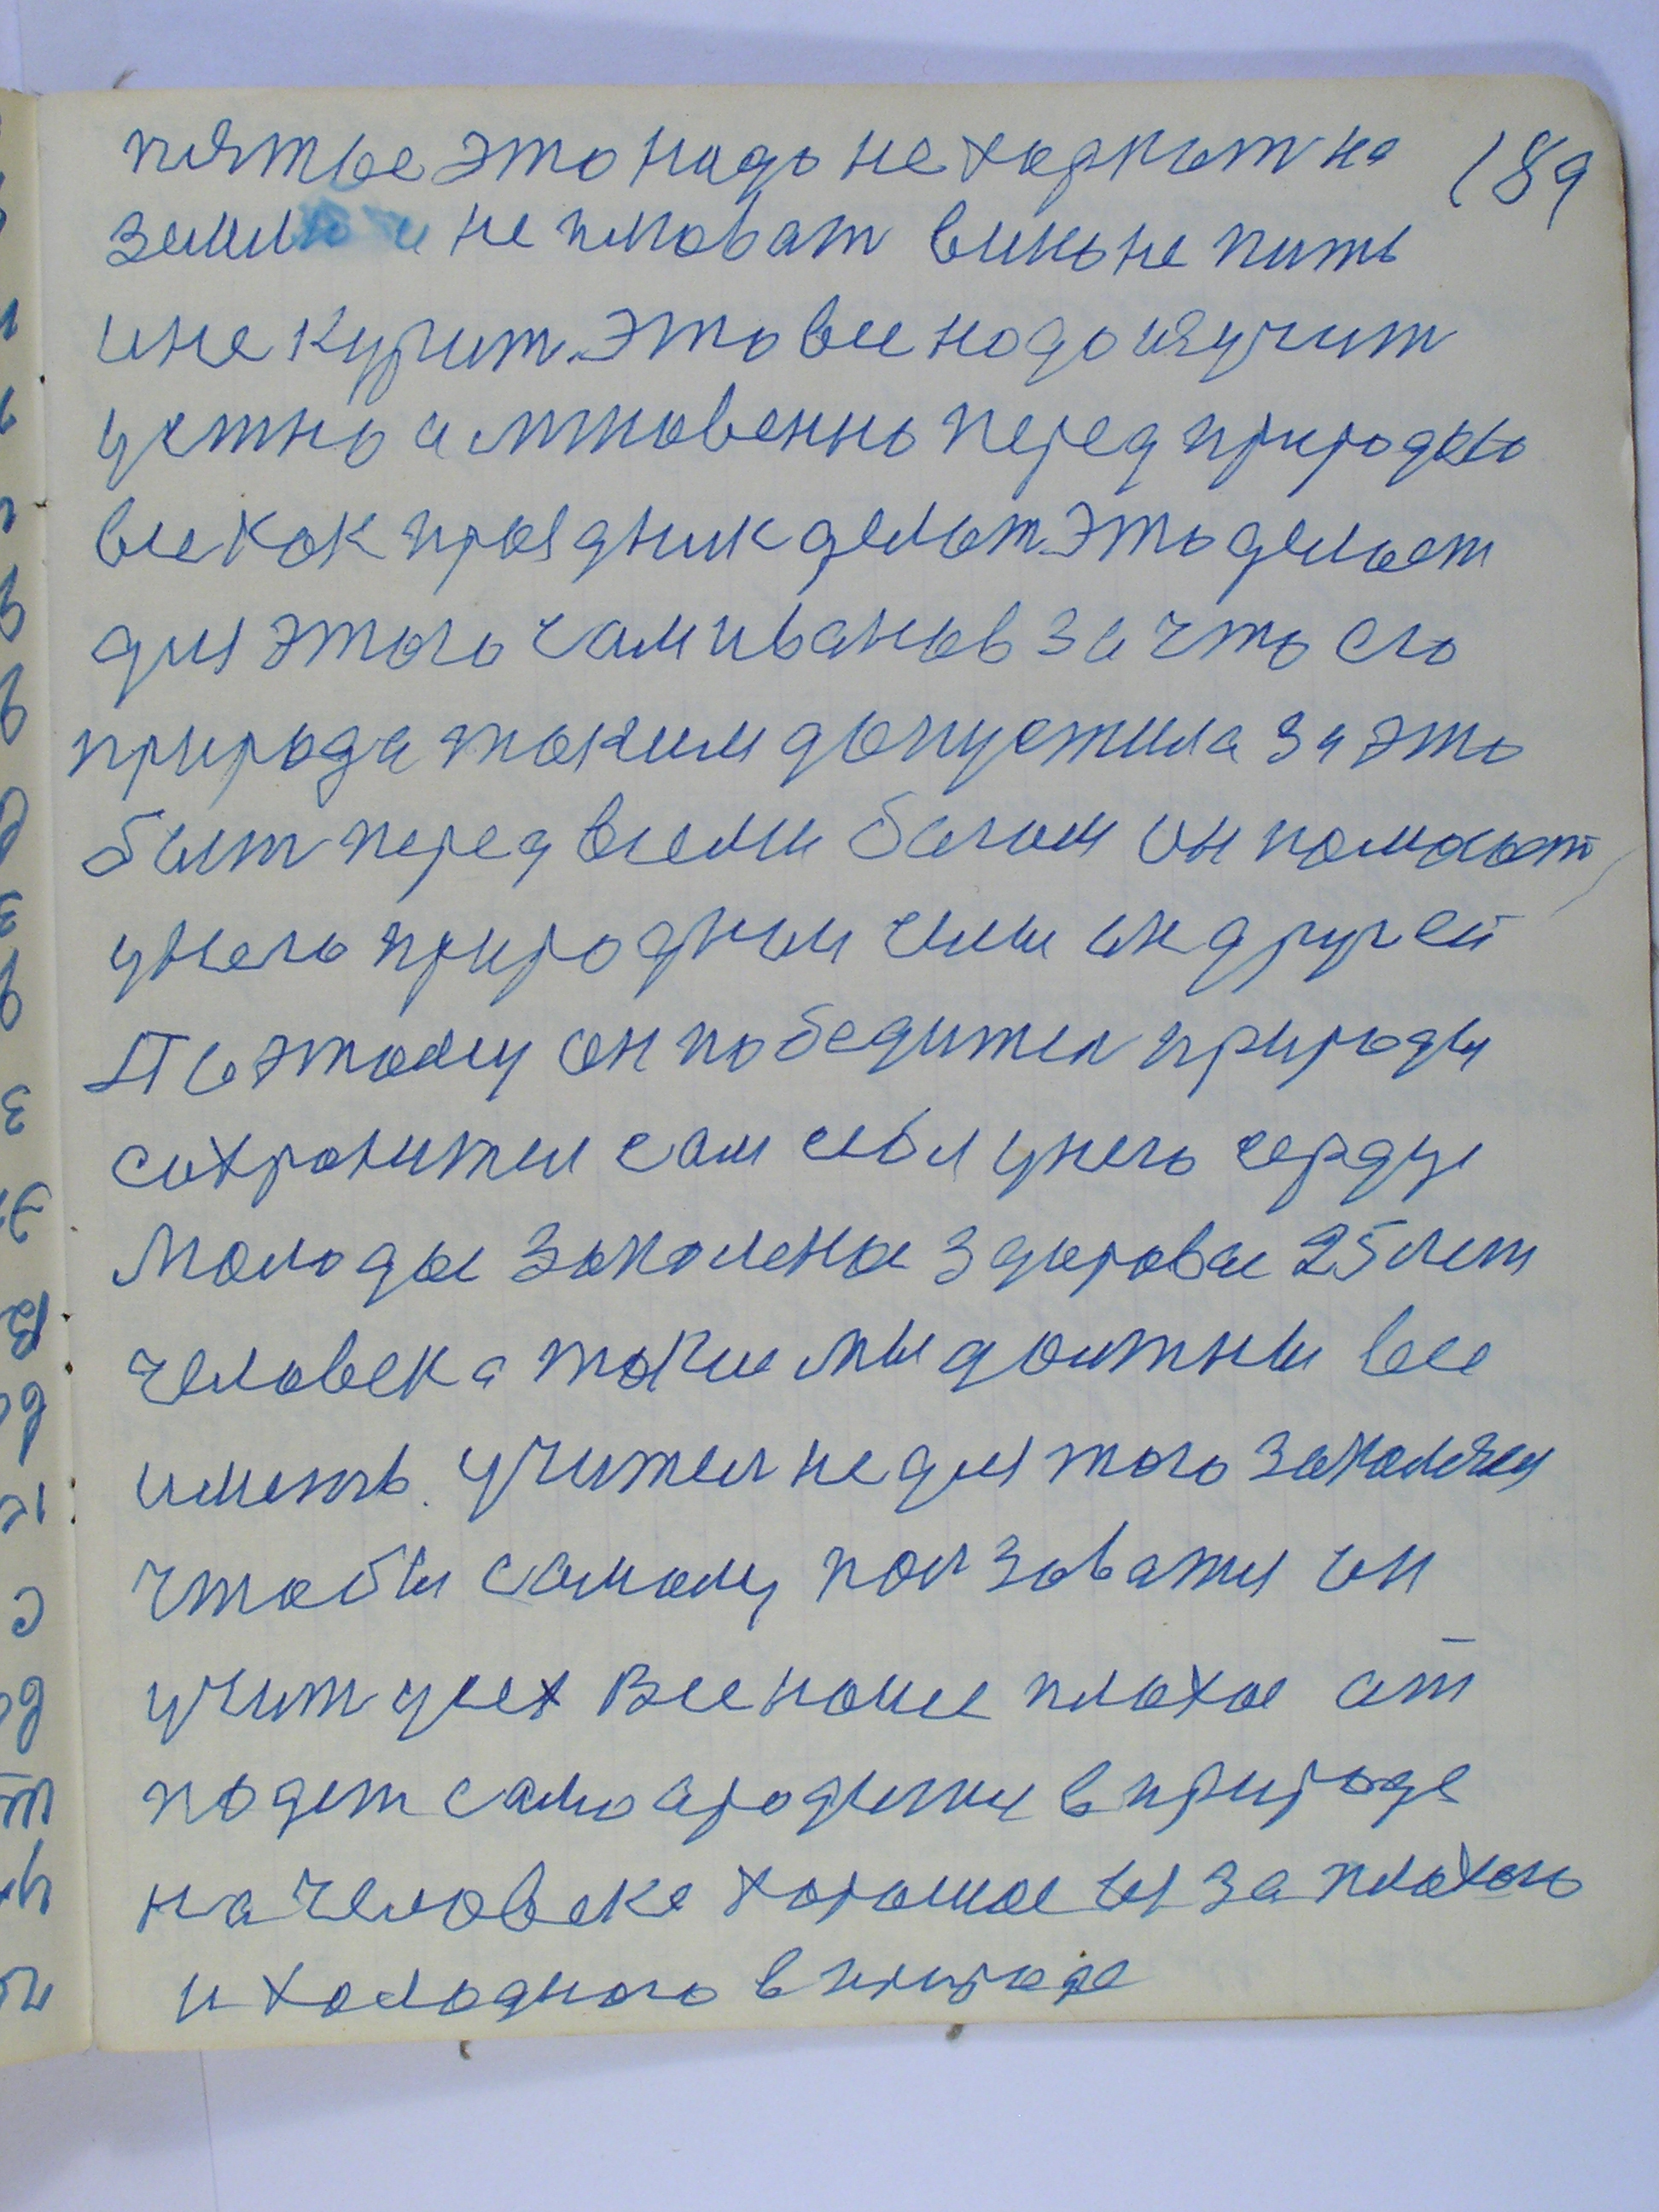 пятое это надо не харкат на 189
землю и не плювать вино не пить
и не курит. Это все надо изучит
устно и мгновенно перед природою
все как праздник делат. Это делает
для этого сам иванов за что его
природа таким допустила за это
быт перед всеми богом он помогает
у него природным силы ик другей
По этому он победител природы
сохранител сам себя у него сердце
молодое закаленое здоровае 25 лет
человека такие мы должны все
иметь. учител не для того закаляся
чтобы самому ползоватся он
учит усех Все наше плохое от
подет само ародится в природе
на человеке хорошое из за плохого
и холодного в природе